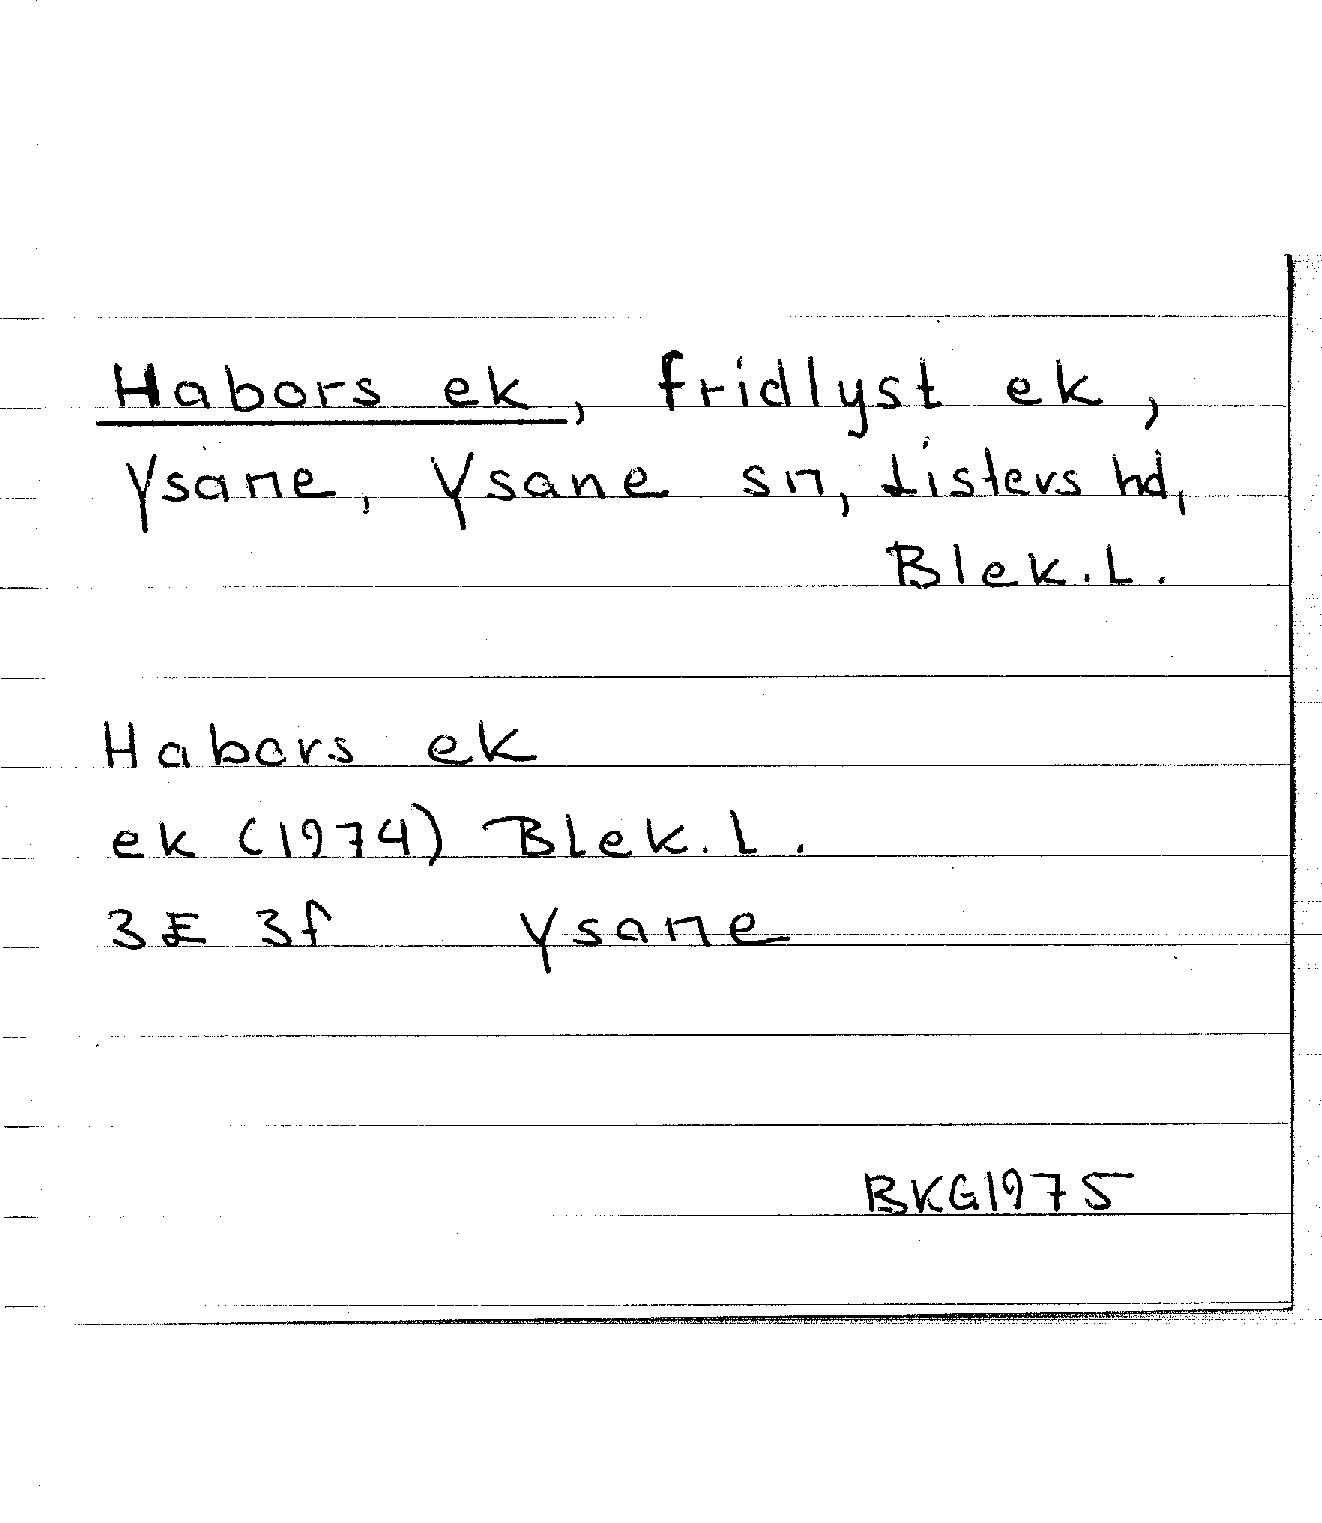 Habors ek, fridlyst ek,
Ysane, Ysane sn, Listers hd,
Blek.L.
Habors ek
ek (1974) Blek.L.
3E 3f Ysane
BKG1975